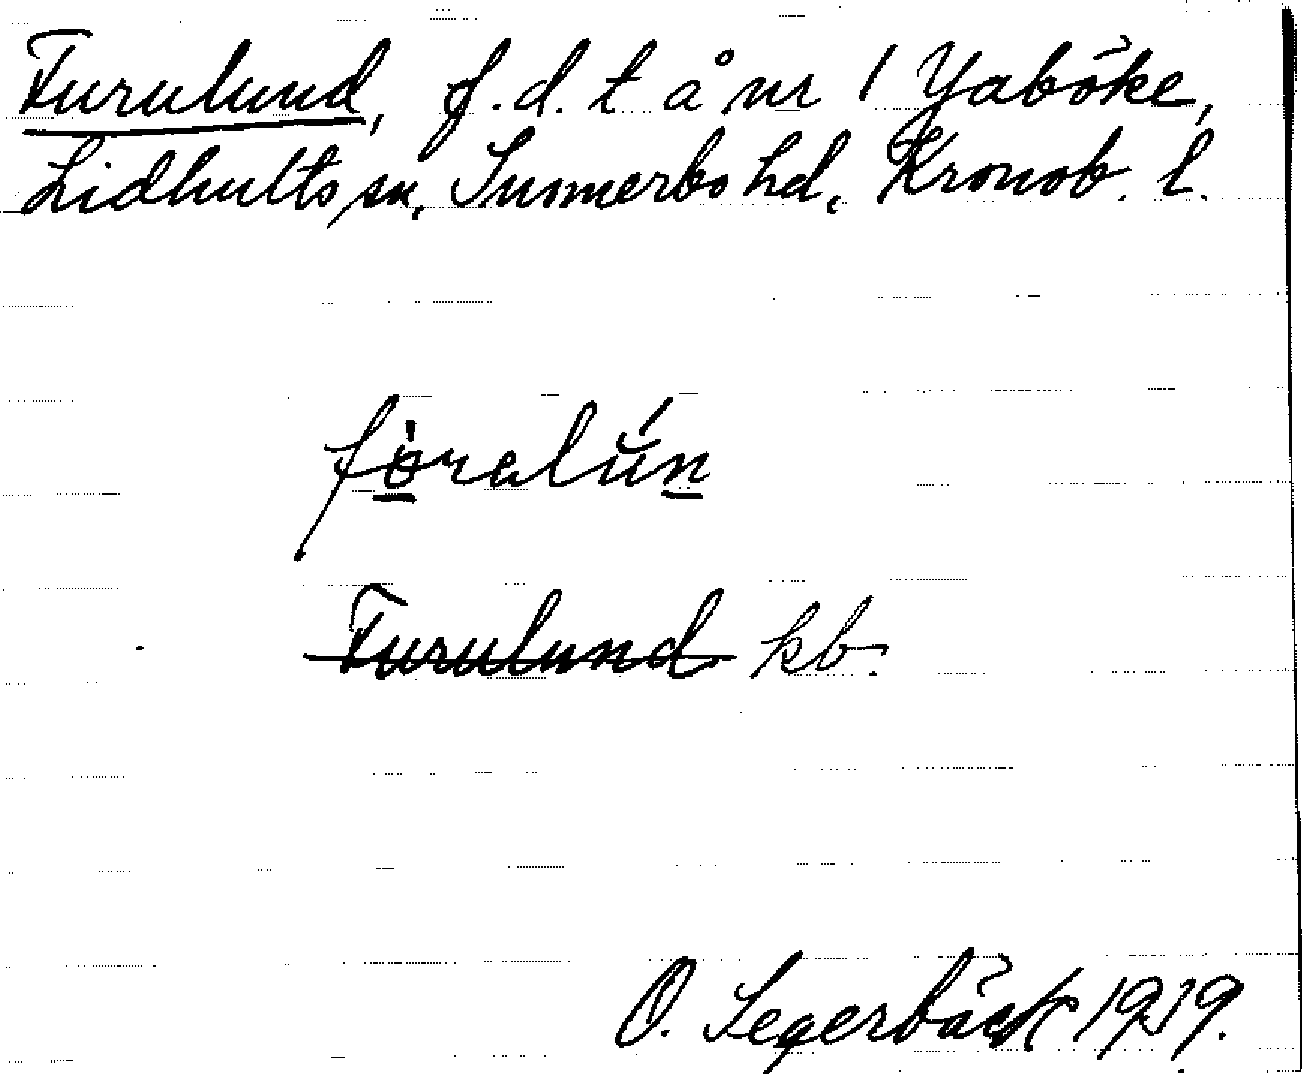 Furulund, f.d. t å nr 1 Yaböke,
Lidhults sn, Sunnerbo hd, Kronob. l.
föralún
Furulund kb.
O. Segerbäck 1919.